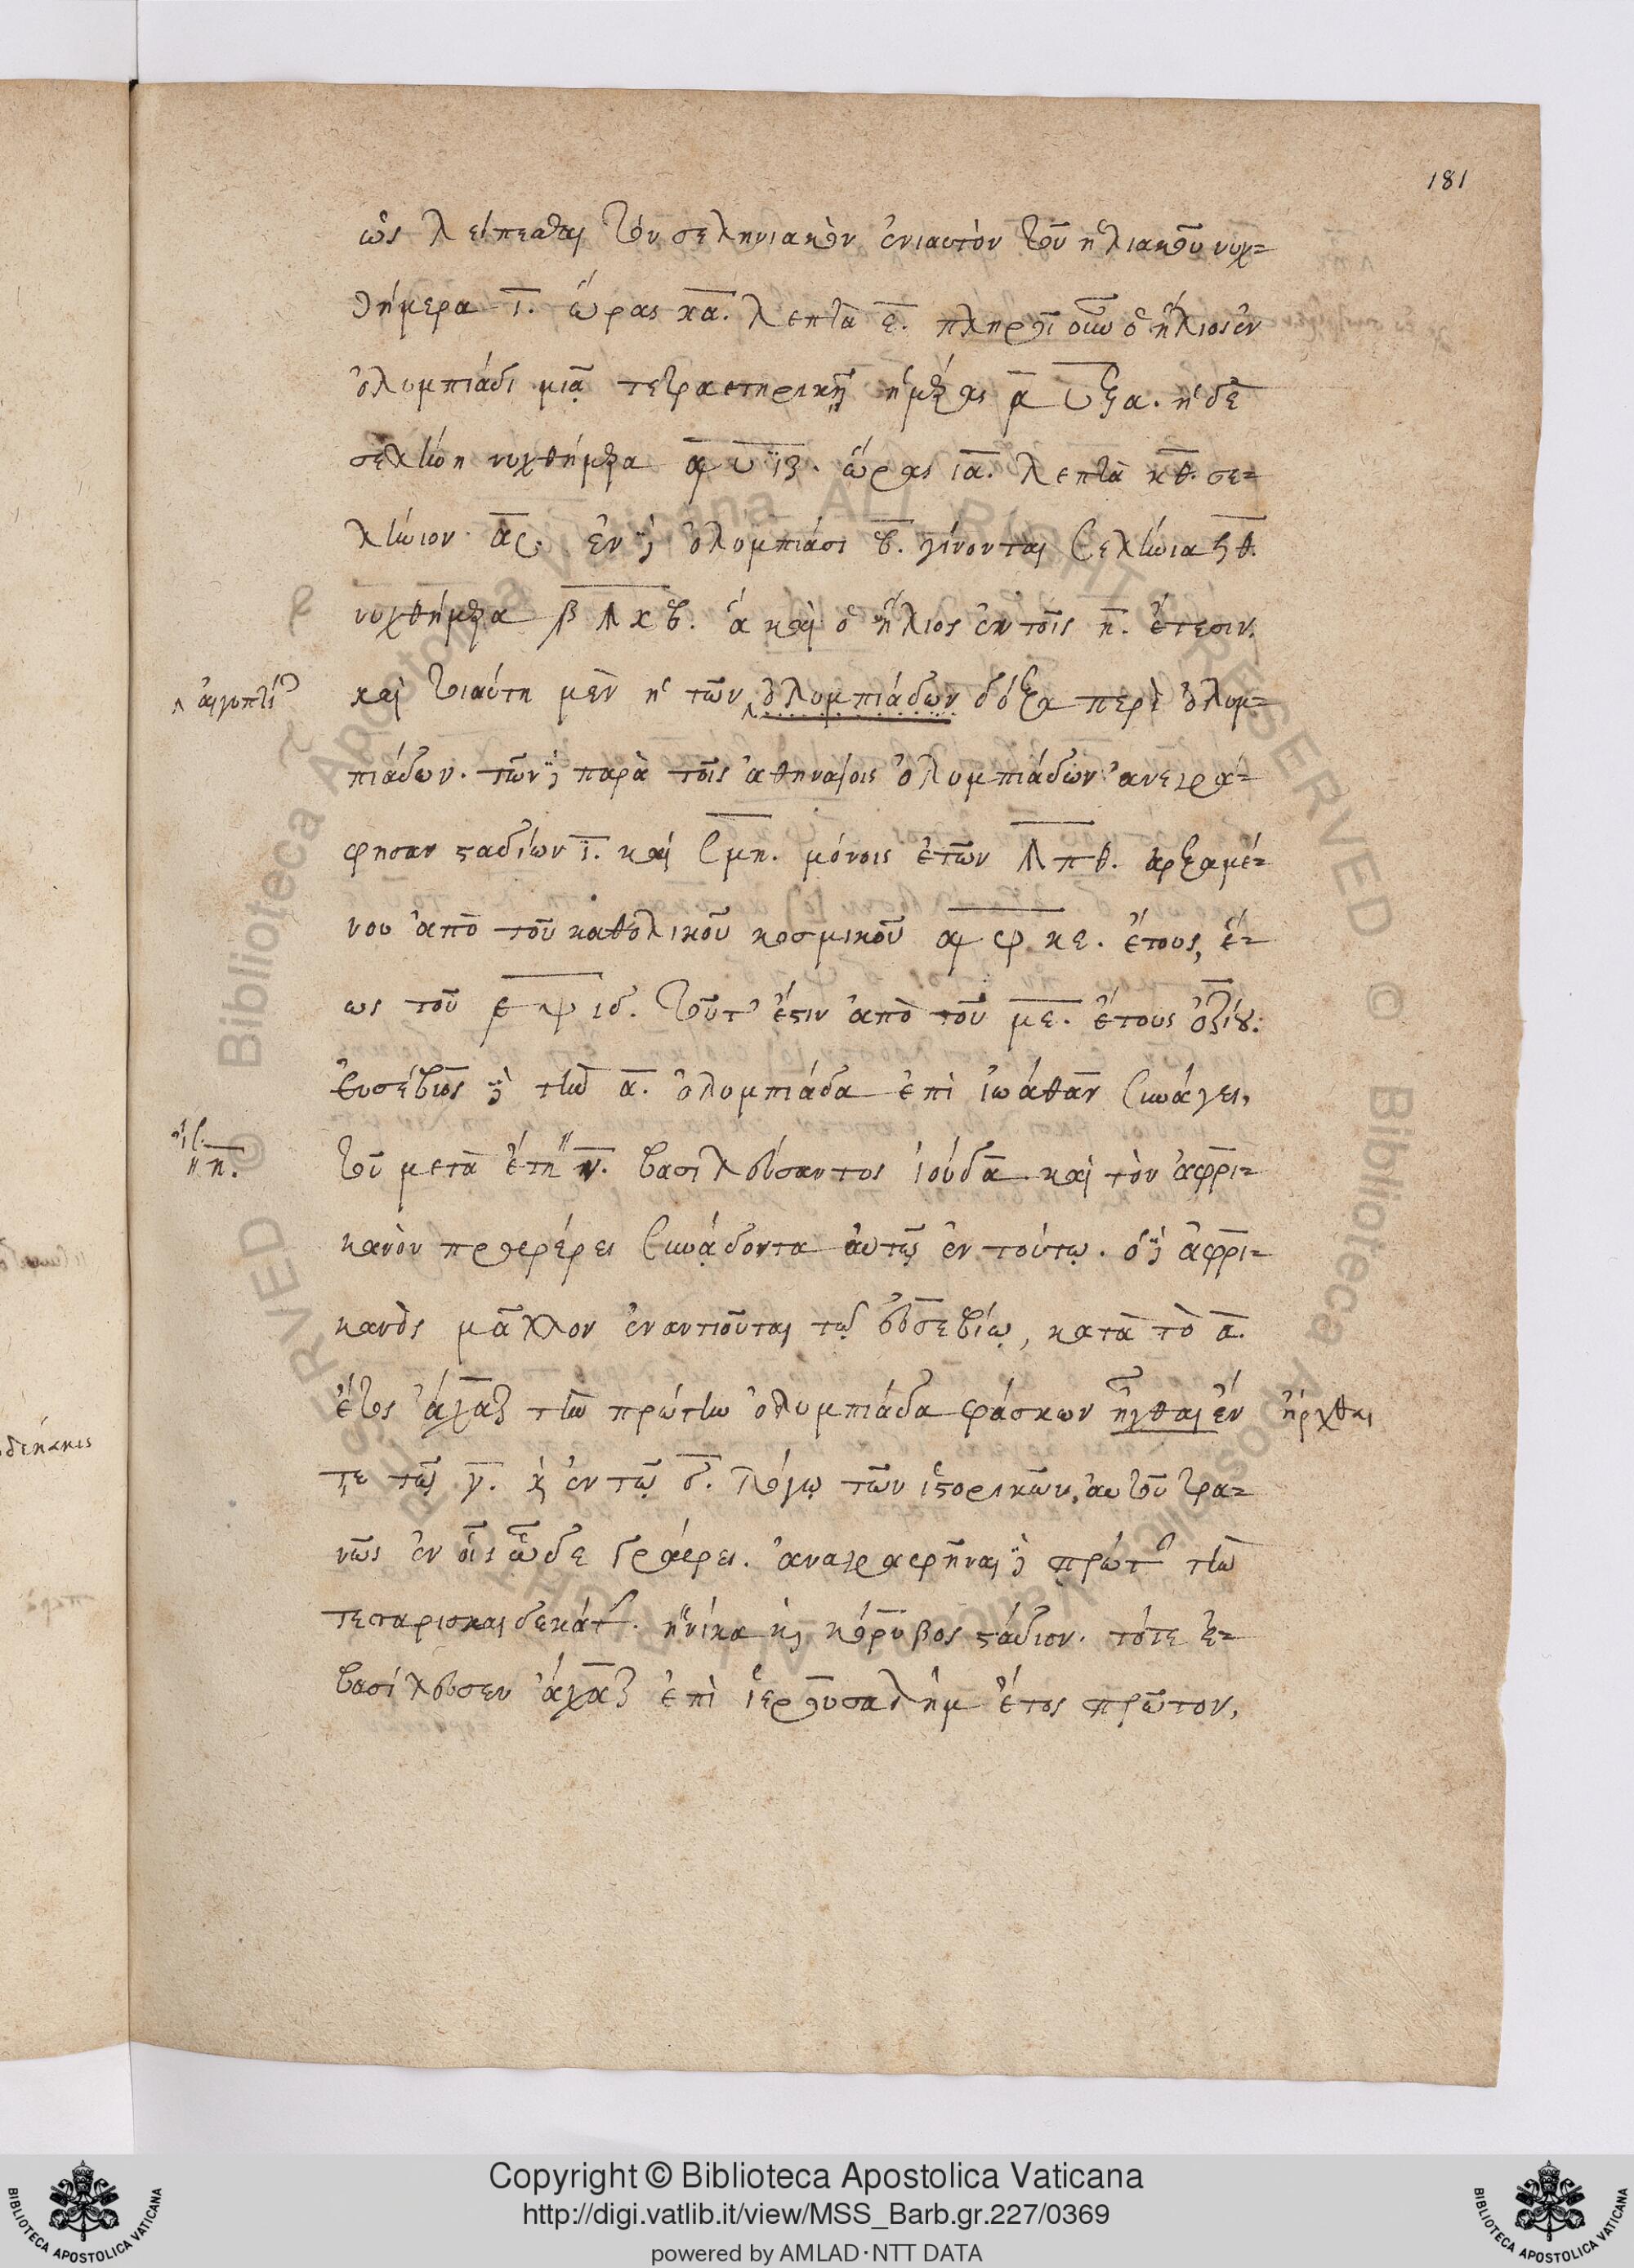 181
ὡς λείπεσθαι τὸν σεληνιακὸν ἐνιαυτὸν τοῦ ἡλιακοῦ νυχ=
θήμερα ι. ὥρας κα. λεπτὰ ε. πληροῖ οὖν ὁ ἥλιος ἐν
ὀλυμπιάδι μιᾷ τετραετηρικῇ ἡμέρας α υξα. ἡ δὲ
σελήνη νυχθήμερα α υιζ. ὥρας ια. λεπτὰ κθ. σε=
λήνιον ας. ἐν δὲ ὀλυμπιάσι β. γίνονται σελήνια ϟθ.
νυχθήμερα β ϡκβ. ἃ καὶ ὁ ἥλιος ἐν τοῖς η. ἔτεσιν.
καὶ τοιαύτη μὲν ἡ τῶν ὀλυμπιάδων δόξα περὶ ὀλυμ=
αἰγυπτί
πιάδων. τῶν δὲ παρὰ τοῖς ἀθηναίοις ὀλυμπιάδων ἀνεγρά=
φησαν σταδίων ι. καὶ σμη. μόνοις ἐτῶν ϡπθ. ἀρξαμέ=
νου ἀπὸ τοῦ καθολικοῦ κοσμικοῦ α φκε. ἔτους, ἕ=
ως τοῦ ε ψιδ. τοῦτ' ἔστιν ἀπὸ τοῦ με. ἔτους ὀζίου.
εὐσέβιος δὲ τὴν α. ὀλυμπιάδα ἐπὶ ἰωάθαν συνάγει,
τοῦ μετὰ ἔτη ν. βασιλεύσαντος ἰούδα καὶ τὸν ἀφρι=
η.
κανὸν προφέρει συνᾴδοντα αὐτῷ ἐν τούτῳ. ὁ δὲ ἀφρι=
κανὸς μᾶλλον ἐναντιοῦται τῷ εὐσεβίῳ, κατὰ τὸ α.
ἔτος ἄχαζ τὴν πρώτην ὀλυμπιάδα φάσκων ἦχθαι ἔν
ἦρχθαι
τε τῷ γ. κ ἐν τῷ δ. λόγῳ τῶν ἱστορικῶν, αὐτοῦ τρα=
νῶς ἐν οἷς ὧδε γράφει. ἀναγραφῆναι δὲ πρώτ τὴν
τεσσαρισκαιδεκάτ. ἡνίκα κς κόρυβος στάδιον. τότε ἐ=
βασίλευσεν ἄχαζ ἐπὶ ἱερουσαλὴμ ἔτος πρῶτον,
δεκάκις
Copyright © Biblioteca Apostolica Vaticana
http://digi.vatlib.it/view/MSS_Barb.gr.227/0369
powered by AMLAD·NTT DATA